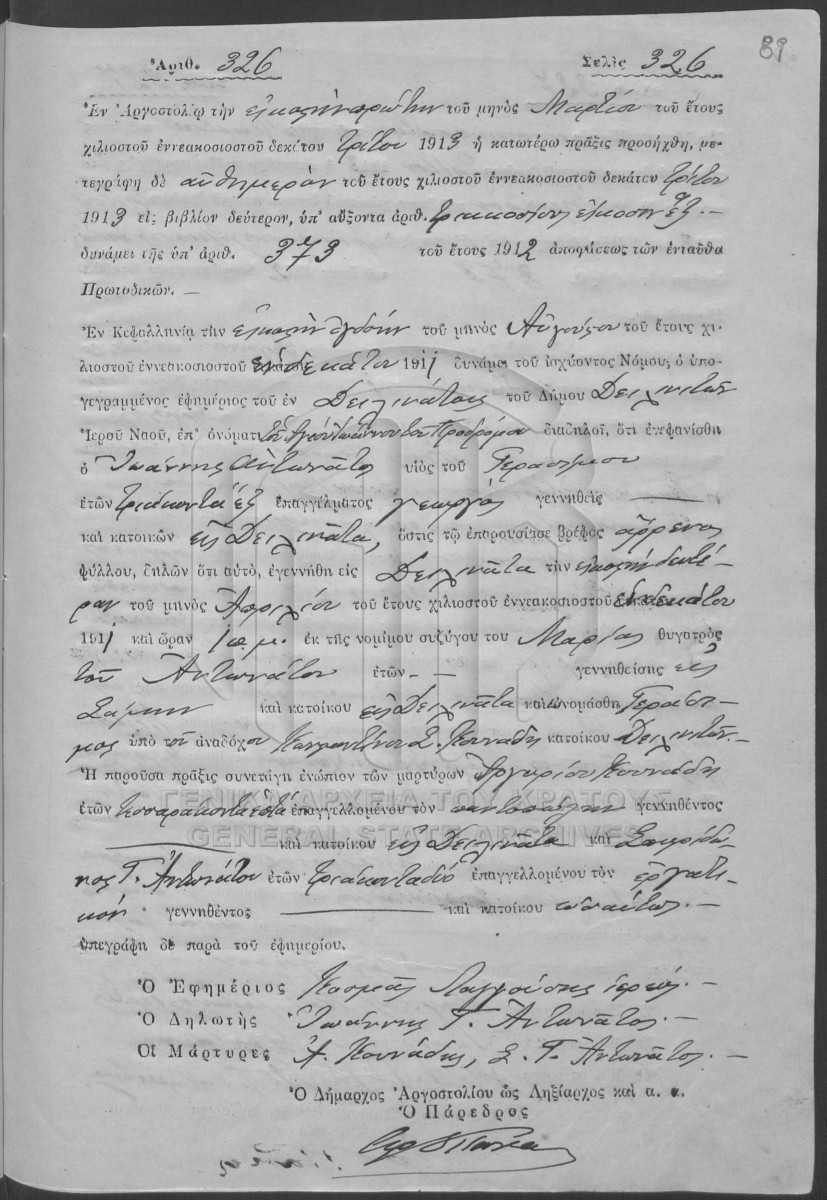 89
Ἀριθ. 326 Σελὶς 326
Ἐν Ἀργοστολίῳ τὴν εἰκοστὴν πρώτην τοῦ μηνὸς Μαρτίου τοῦ ἔτους
χιλιοστοῦ ἐννεακοσιοστοῦ δεκάτου τρίτου 1913 ἡ κατωτέρω πρᾶξις προσήχθη, με-
τεγράφη δὲ αὐθημερὸν τοῦ ἔτους χιλιοστοῦ ἐννεακοσιοστοῦ δεκάτου τρίτου
1913 εἰς βιβλίον δεύτερον, ὑπ' αὔξοντα ἀριθ. τριακοσίους εἴκοσιν ἓξ.—
δυνάμει τῆς ὑπ' ἀριθ. 373 τοῦ ἔτους 1912 ἀποφάσεως τῶν ἐνταῦθα
Πρωτοδικῶν.—
Ἐν Κεφαλληνίᾳ τὴν εἰκοστὴν ὀγδόην τοῦ μηνὸς Αὐγούστου τοῦ ἔτους χι-
λιοστοῦ ἐννεακοσιοστοῦ ἑνδεκάτου 1911 δυνάμει τοῦ ἰσχύοντος Νόμου, ὁ ὑπο-
γεγραμμένος ἐφημέριος τοῦ ἐν Δειλινάτοις τοῦ Δήμου Δειλινατῶν
Ἱεροῦ Ναοῦ, ἐπ' ὀνόματι τοῦ Ἁγίου Ἰωάννου τοῦ Προδρόμου διαδηλοῖ, ὅτι ἐνεφανίσθη
ὁ Ἰωάννης Ἀντωνᾶτος υἱὸς τοῦ Γερασίμου
ἐτῶν τριάκοντα ἓξ ἐπαγγέλματος γεωργὸς γεννηθεὶς —
καὶ κατοικῶν εἰς Δειλινᾶτα, ὅστις τῷ ἐπαρουσίασε βρέφος ἄρρενος
φύλλου, δηλῶν ὅτι αὐτὸ, ἐγεννήθη εἰς Δειλινᾶτα τὴν εἰκοστὴν δευτέ-
ραν τοῦ μηνὸς Ἀπριλίου τοῦ ἔτους χιλιοστοῦ ἐννεακοσιοστοῦ ἑνδεκάτου
1911 καὶ ὥραν 1 π.μ. ἐκ τῆς νομίμου συζύγου του Μαρίας θυγατρὸς
τοῦ Ἀντωνάτου ἐτῶν — — γεννηθείσης εἰς
Σάμην καὶ κατοίκου εἰς Δειλινᾶτα καὶ ὠνομάσθη Γεράσι-
μος ὑπὸ τοῦ ἀναδόχου Κωνσταντίνου Σ. Κουνάδη κατοίκου Δειλινατῶν.—
Ἡ παροῦσα πρᾶξις συνετάγη ἐνώπιον τῶν μαρτύρων Ἀργυρίου Κουνάδη
ἐτῶν τεσσαράκοντα ἑπτὰ ἐπαγγελλομένου τὸν παντοπώλην γεννηθέντος
— καὶ κατοίκου εἰς Δειλινᾶτα καὶ Σπυρίδω-
νος Γ. Ἀντωνάτου ἐτῶν τριάκοντα δύο ἐπαγγελλομένου τὸν ἐργατι-
κόν γεννηθέντος — καὶ κατοίκου ὡσαύτως.—
ὑπεγράφη δὲ παρὰ τοῦ ἐφημερίου.
Ὁ Ἐφημέριος Κοσμᾶς ἱερεύς.—
Ὁ Δηλωτὴς Ἰωάννης Γ. Ἀντωνᾶτος.—
Οἱ Μάρτυρες Ἀ. Κουνάδης, Σ. Γ. Ἀντωνᾶτος.—
Ὁ Δήμαρχος Ἀργοστολίου ὡς Ληξίαρχος καὶ α. α.
Ὁ Πάρεδρος
ΓΕΝΙΚΑ ΑΡΧΕΙΑ ΤΟΥ ΚΡΑΤΟΥΣ
GENERAL STATE ARCHIVES